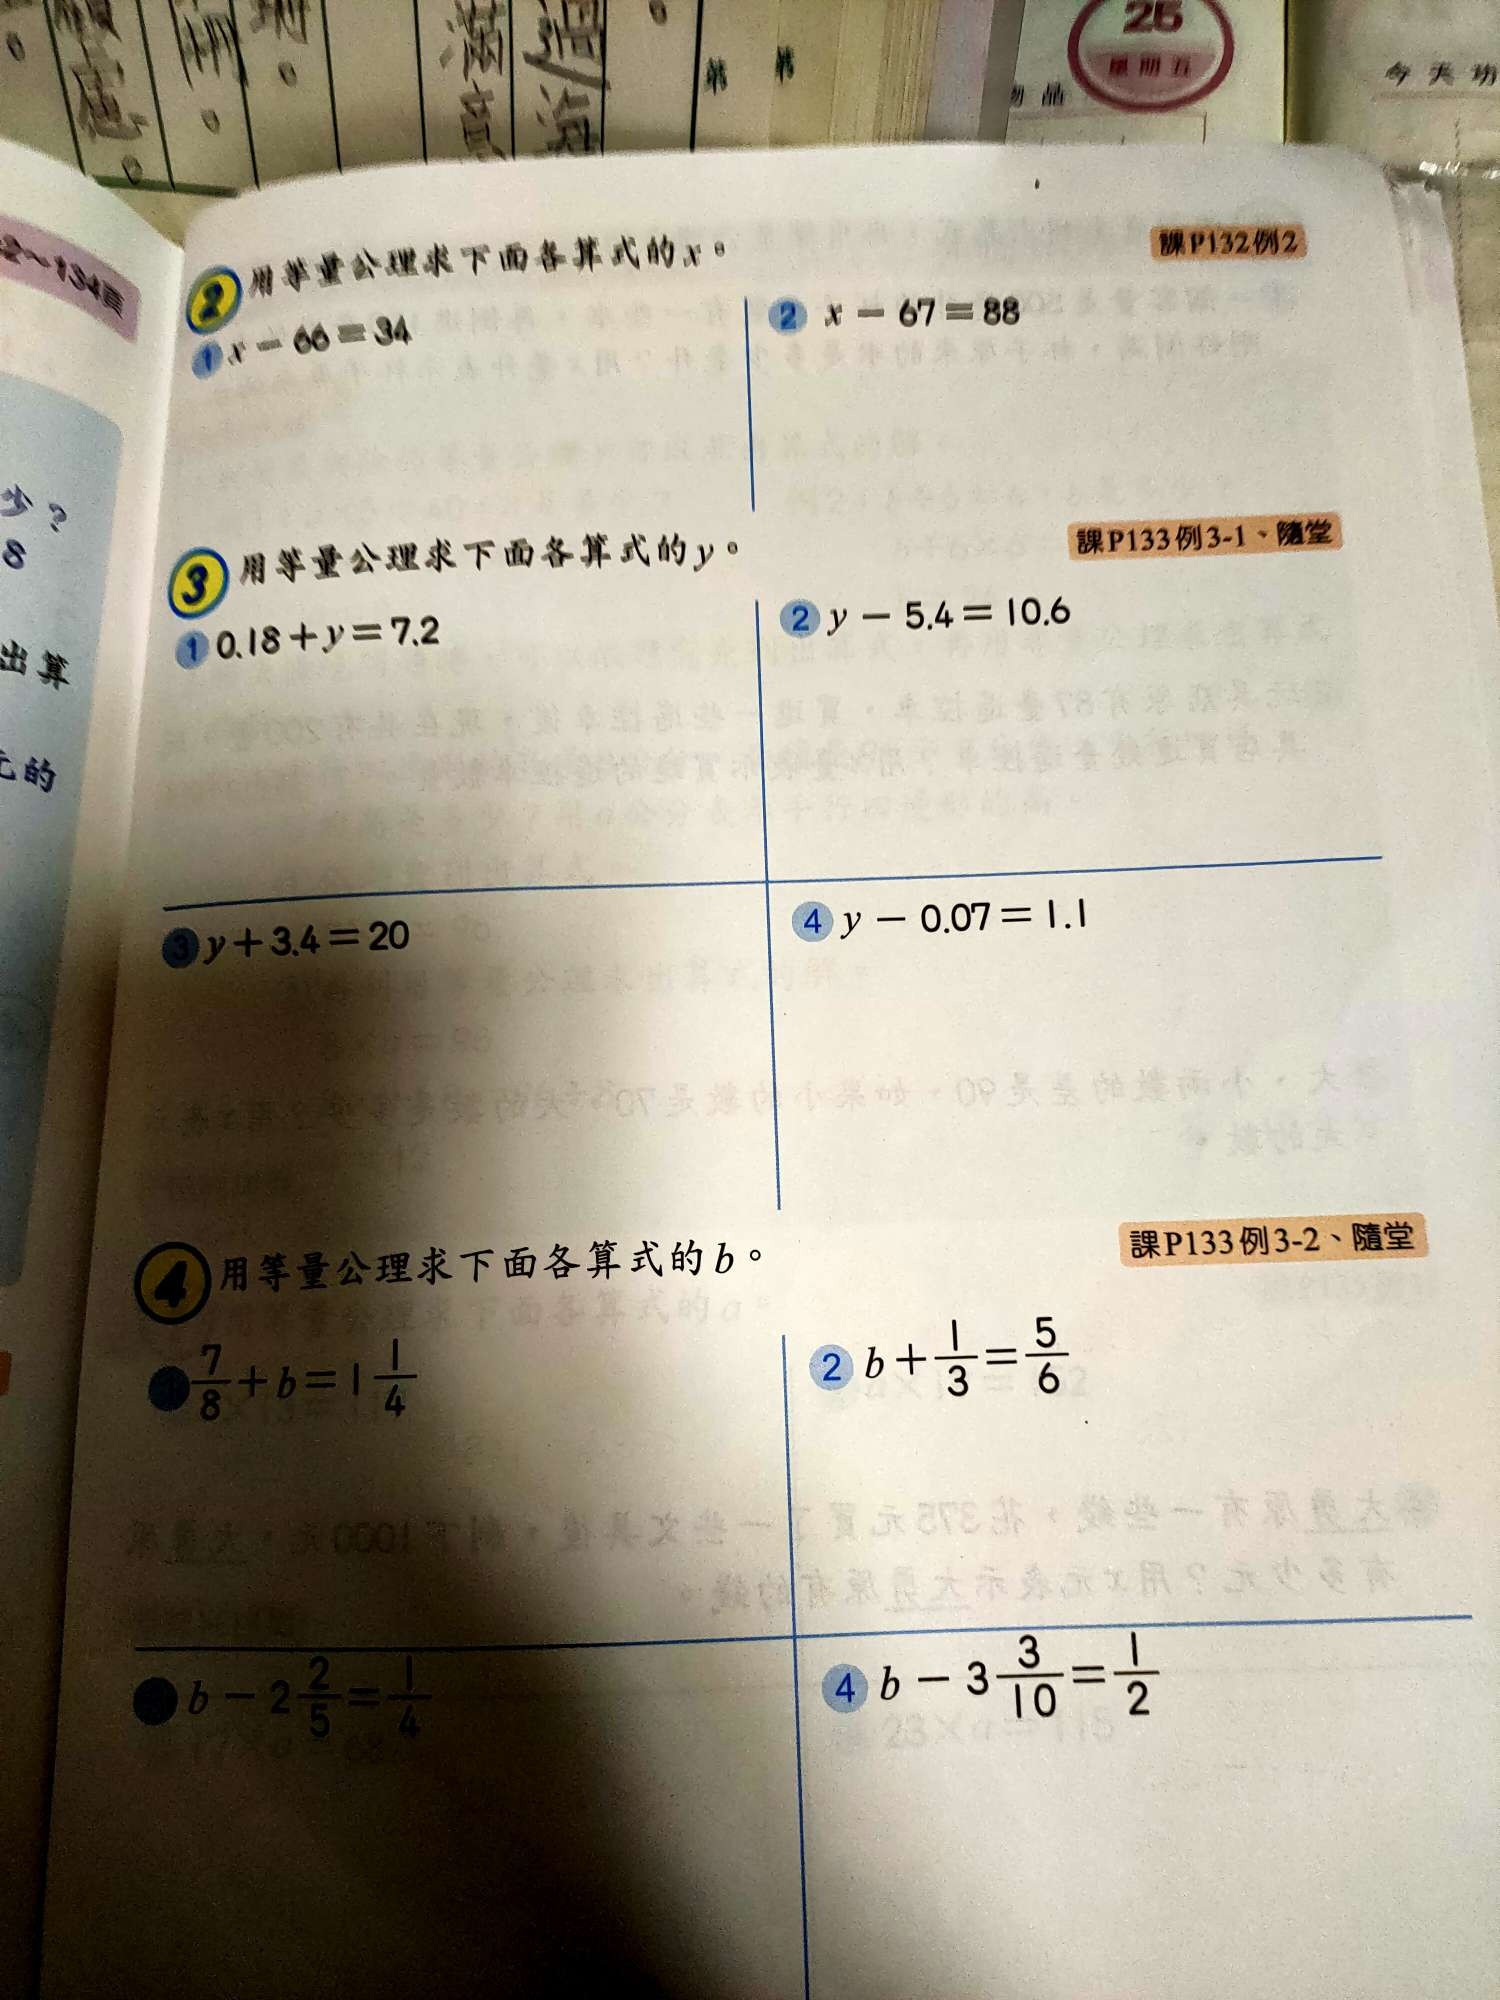 滿意
第
第
26
星期五
物品
今天功
2～134頁
少？
8
出算
元的
2 用等量公理求下面各算式的x。
課P132例2
1 x－66＝34
2 x－67＝88
3 用等量公理求下面各算式的y。
課P133例3-1、隨堂
1 0.18＋y＝7.2
2 y－5.4＝10.6
3 y＋3.4＝20
4 y－0.07＝1.1
4 用等量公理求下面各算式的b。
課P133例3-2、隨堂
7/8＋b＝1 1/4
2 b＋1/3＝5/6
b－2 2/5＝1/4
4 b－3 3/10＝1/2